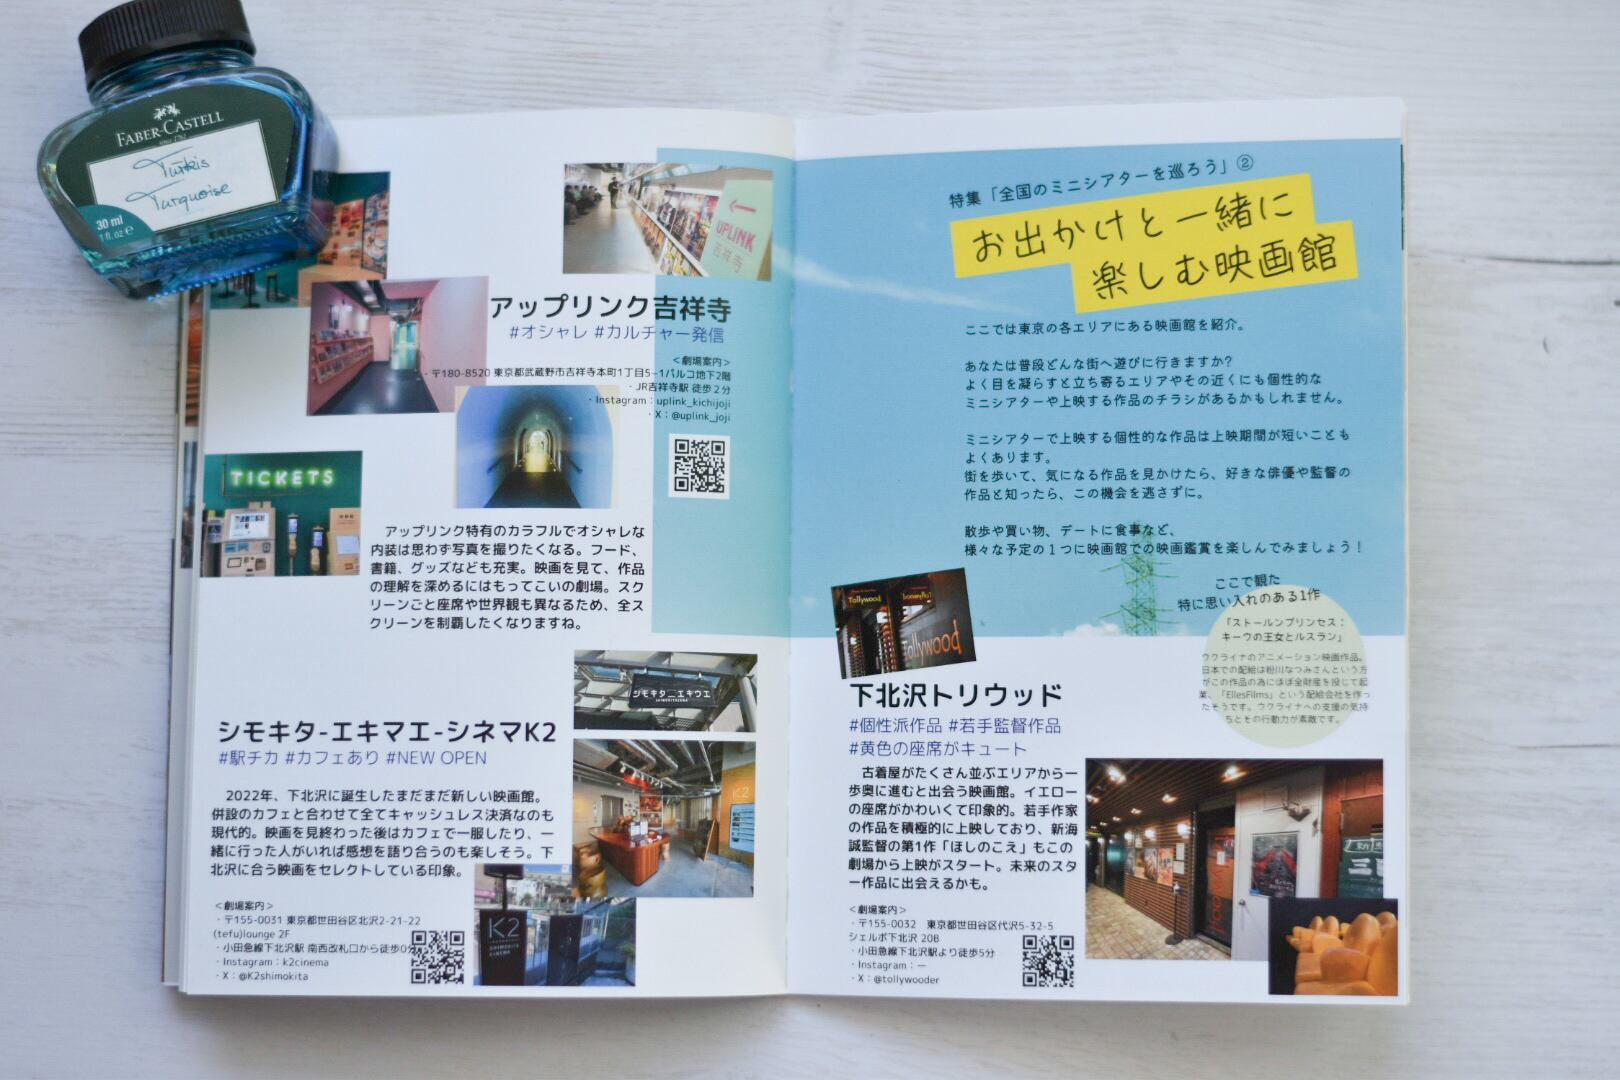 FABER-CASTELL
since 1761
Türkis
Turquoise
30 ml
1 fl. oz ℮
UPLINK
吉祥寺
アップリンク吉祥寺
#オシャレ #カルチャー発信
<劇場案内>
・〒180-8520 東京都武蔵野市吉祥寺本町1丁目5−1パルコ地下2階
・JR吉祥寺駅 徒歩2分
・Instagram：uplink_kichijoji
・X：@uplink_joji
TICKETS
アップリンク特有のカラフルでオシャレな
内装は思わず写真を撮りたくなる。フード、
書籍、グッズなども充実。映画を見て、作品
の理解を深めるにはもってこいの劇場。スク
リーンごと座席や世界観も異なるため、全ス
クリーンを制覇したくなりますね。
シモキタ エキウエ
SHIMOKITAEKIUE
シモキタ-エキマエ-シネマK2
#駅チカ #カフェあり #NEW OPEN
2022年、下北沢に誕生したまだまだ新しい映画館。
併設のカフェと合わせて全てキャッシュレス決済なのも
現代的。映画を見終わった後はカフェで一服したり、一
緒に行った人がいれば感想を語り合うのも楽しそう。下
北沢に合う映画をセレクトしている印象。
K2
<劇場案内>
・〒155-0031 東京都世田谷区北沢2-21-22
(tefu)lounge 2F
・小田急線下北沢駅 南西改札口から徒歩0分
・Instagram：k2cinema
・X：@K2shimokita
K2
SHIMOKITA
CINEMA
特集「全国のミニシアターを巡ろう」②
お出かけと一緒に
楽しむ映画館
ここでは東京の各エリアにある映画館を紹介。
あなたは普段どんな街へ遊びに行きますか?
よく目を凝らすと立ち寄るエリアやその近くにも個性的な
ミニシアターや上映する作品のチラシがあるかもしれません。
ミニシアターで上映する個性的な作品は上映期間が短いことも
よくあります。
街を歩いて、気になる作品を見かけたら、好きな俳優や監督の
作品と知ったら、この機会を逃さずに。
散歩や買い物、デートに食事など、
様々な予定の1つに映画館での映画鑑賞を楽しんでみましょう！
ここで観た
特に思い入れのある1作
「ストールンプリンセス：
キーウの王女とルスラン」
ウクライナのアニメーション映画作品。
日本での配給は粉川なつみさんという方
がこの作品の為にほぼ全財産を投じて起
業、「EllesFilms」という配給会社を作っ
たそうです。ウクライナへの支援の気持
ちとその行動力が素敵です。
Tollywood
Tollywood
下北沢トリウッド
#個性派作品 #若手監督作品
#黄色の座席がキュート
古着屋がたくさん並ぶエリアから一
歩奥に進むと出会う映画館。イエロー
の座席がかわいくて印象的。若手作家
の作品を積極的に上映しており、新海
誠監督の第1作「ほしのこえ」もこの
劇場から上映がスタート。未来のスタ
ー作品に出会えるかも。
<劇場案内>
・〒155-0032 東京都世田谷区代沢5-32-5
シェルボ下北沢 20B
・小田急線下北沢駅より徒歩5分
・Instagram：ー
・X：@tollywooder